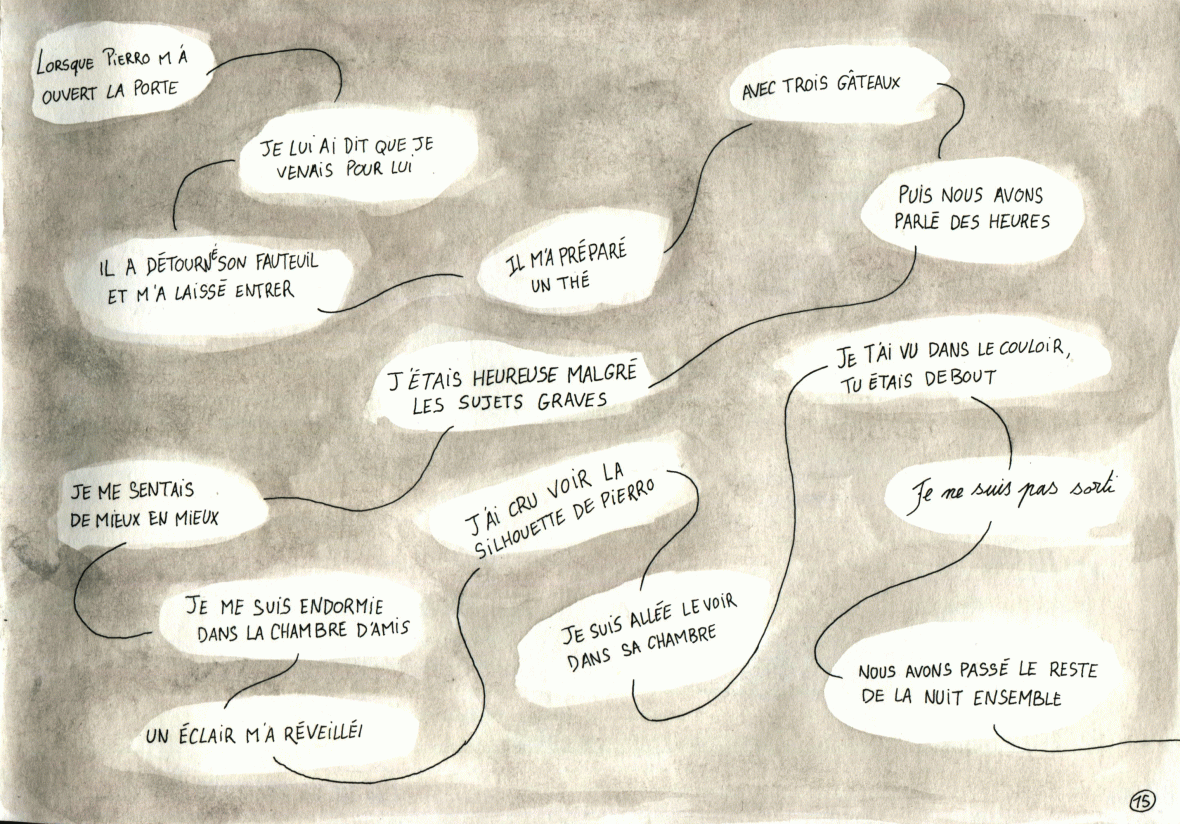 LORSQUE PIERRO M'À
OUVERT LA PORTE
JE LUI AI DIT QUE JE
VENAIS POUR LUI
IL A DÉTOURNÉ SON FAUTEUIL
ET M'A LAISSÉ ENTRER
IL M'A PRÉPARÉ
UN THÉ
AVEC TROIS GÂTEAUX
PUIS NOUS AVONS
PARLÉ DES HEURES
J'ÉTAIS HEUREUSE MALGRÉ
LES SUJETS GRAVES
JE ME SENTAIS
DE MIEUX EN MIEUX
JE ME SUIS ENDORMIE
DANS LA CHAMBRE D'AMIS
UN ÉCLAIR M'A RÉVEILLÉ
J'AI CRU VOIR LA
SILHOUETTE DE PIERRO
JE SUIS ALLÉE LE VOIR
DANS SA CHAMBRE
JE T'AI VU DANS LE COULOIR,
TU ÉTAIS DEBOUT
Je ne suis pas sorti
NOUS AVONS PASSÉ LE RESTE
DE LA NUIT ENSEMBLE
15